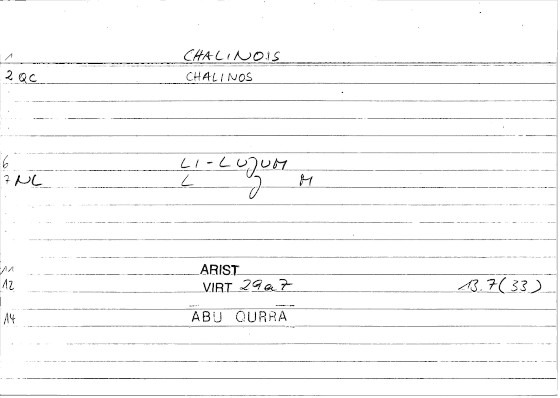 1 CHALINOIS
2 QC CHALINOS
6 LI-LUJUM
7 NL L J M
11 ARIST
12 VIRT 29a7 13.7(33)
14 ABU QURRA